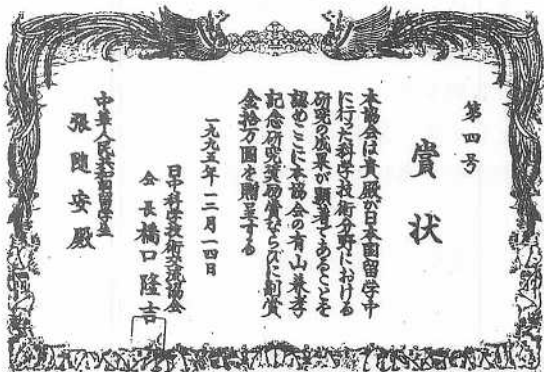 第四号
賞状
本協会は貴殿が日本国留学中
に行った科学技術分野における
研究の成果が顕著であることを
認めここに本協会の有山兼孝
記念研究奨励賞ならびに副賞
金拾万圓を贈呈する
一九九五年一二月一四日
日中科学技術交流協会
会長 橋口隆吉
中華人民共和国留学生
張随安殿